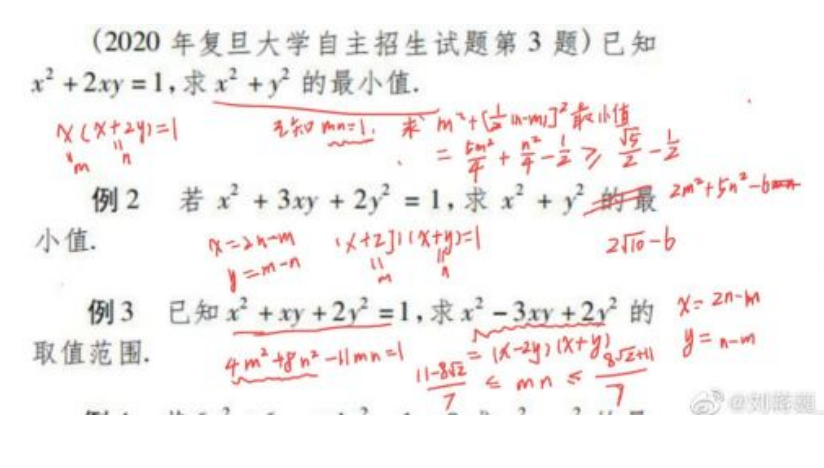 (2020年复旦大学自主招生试题第3题)已知
x²+2xy=1,求x²+y²的最小值.
x(x+2y)=1
m n
已知mn=1. 求 m²+[½(n-m)]² 最小值
= 5m²/4 + n²/4 - 1/2 ≥ √5/2 - 1/2
例2 若x²+3xy+2y²=1,求x²+y²的最
小值.
2m²+5n²-6mn
x=2n-m
y=m-n
(x+2y)(x+y)=1
m n
2√10-6
例3 已知x²+xy+2y²=1,求x²-3xy+2y²的
取值范围.
4m²+8n²-11mn=1
=(x-2y)(x+y)
x=2n-m
y=n-m
(11-8√2)/7 ≤ mn ≤ (8√2+11)/7